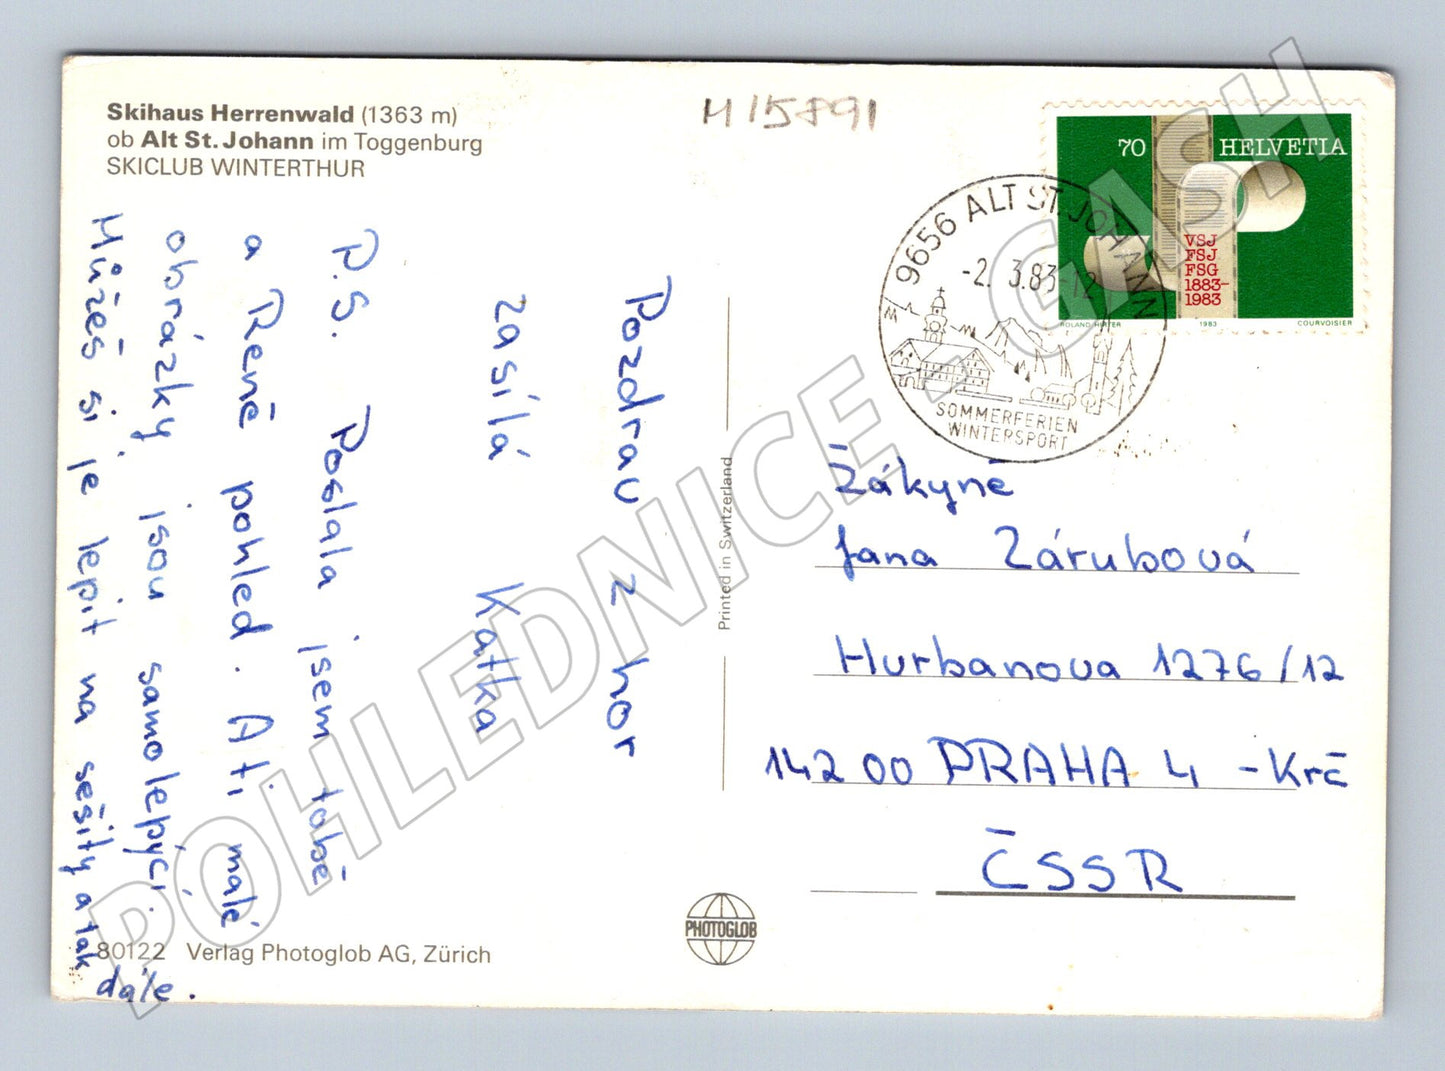 Skihaus Herrenwald (1363 m)
ob Alt St. Johann im Toggenburg
SKICLUB WINTERTHUR
M15891
70 HELVETIA
VSJ
FSJ
FSG
1883-
1983
ROLAND HIRTER 1983 COURVOISIER
9656 ALT ST. JOHANN
-2. 3.83-12
SOMMERFERIEN
WINTERSPORT
Pozdrav z hor
zasílá Katka
P.S. Poslala jsem tobě
a Reně pohled. A ti malé
obrázky jsou samolepýcí.
Můžeš si je lepit na sešity a tak
dále.
Printed in Switzerland
Žákyně
Jana Zárubová
Hurbanova 1276/12
142 00 PRAHA 4 - Krč
ČSSR
PHOTOGLOB
80122 Verlag Photoglob AG, Zürich
POHLEDNICE - GASH